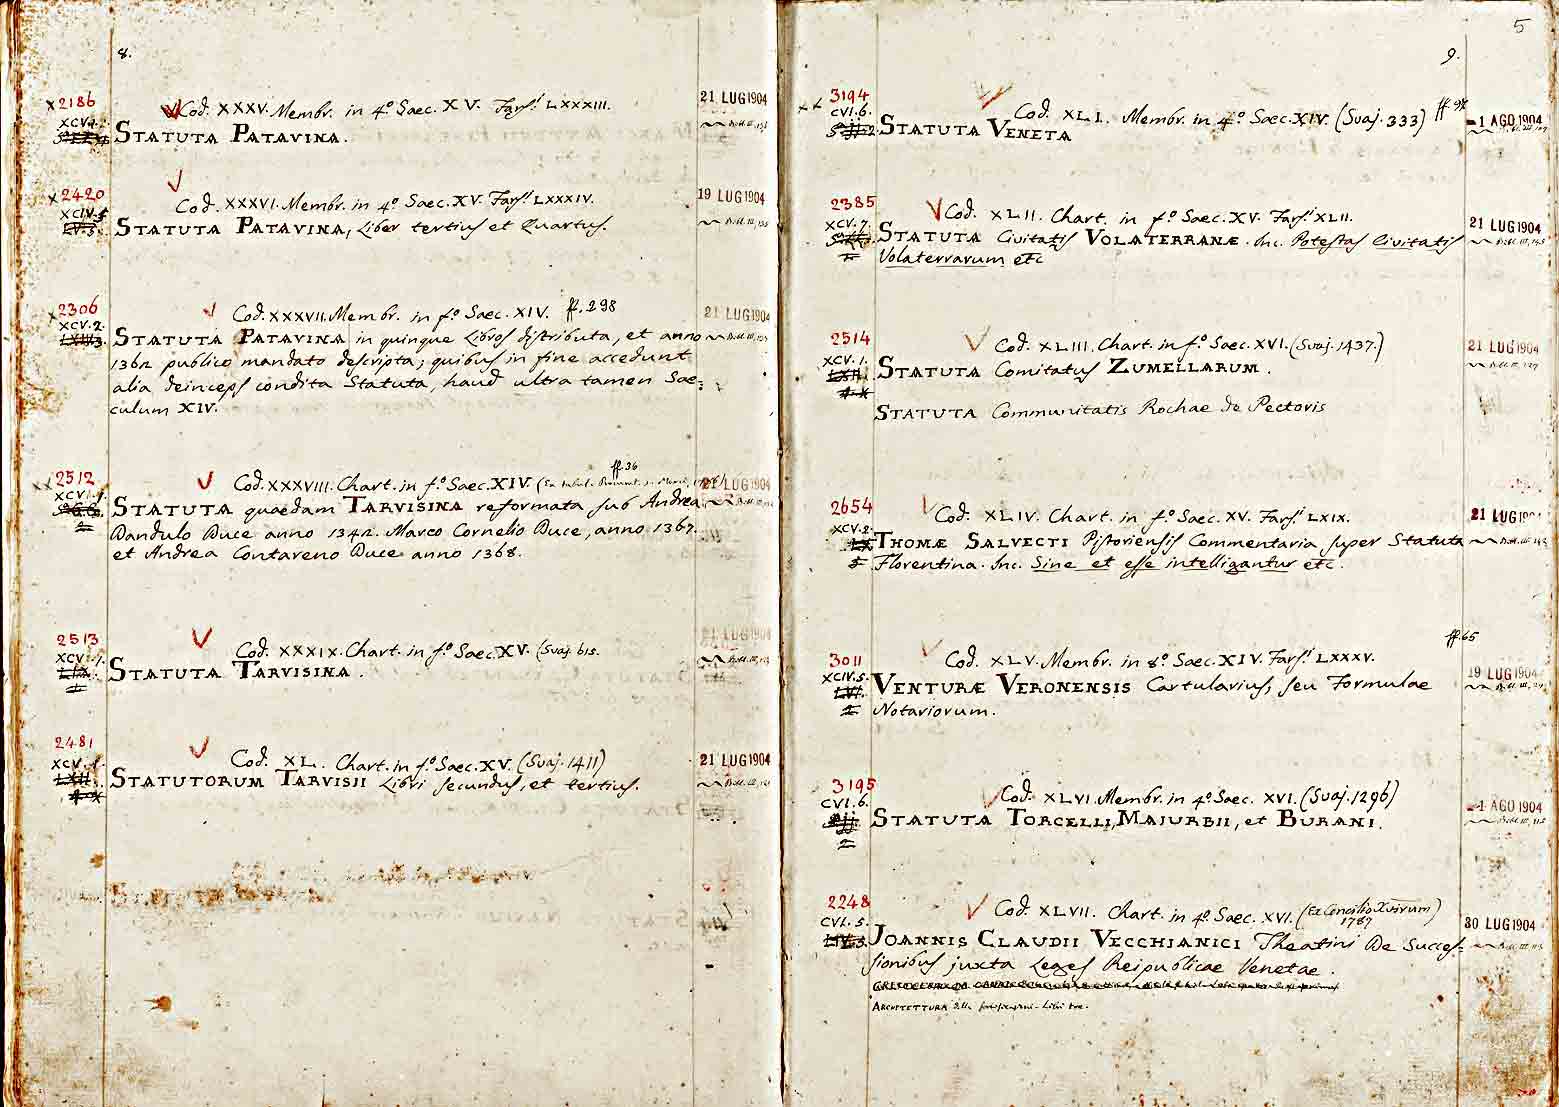 8.
2186
Cod. XXXV. Membr. in 4.º Saec. XV. Fars.i LXXXIII.
21 LUG 1904
XCV.
STATUTA PATAVINA.
2420
Cod. XXXVI. Membr. in 4.º Saec. XV. Fars.i LXXXIV.
19 LUG 1904
XCIV. 5.
STATUTA PATAVINA, Liber tertius et Quartus.
2306
Cod. XXXVII. Membr. in f.º Saec. XIV. ff. 298
21 LUG 1904
XCV. 2.
STATUTA PATAVINA in quinque Libros distributa, et anno
1362 publico mandato descripta; quibus in fine accedunt
alia deinceps condita Statuta, haud ultra tamen Sae=
culum XIV.
ff. 36
2512
Cod. XXXVIII. Chart. in f.º Saec. XIV.
21 LUG 1904
XCVI.
STATUTA quaedam TARVISINA reformata sub Andrea
Dandulo Duce anno 1342. Marco Cornelio Duce, anno 1367.
et Andrea Contareno Duce anno 1368.
2513
Cod. XXXIX. Chart. in f.º Saec. XV. (Svaj. 615.
21 LUG 1904
XCVI. 1.
STATUTA TARVISINA.
2481
Cod. XL. Chart. in f.º Saec. XV. (Svaj. 1411)
21 LUG 1904
XCV. 1.
STATUTORUM TARVISII Libri secundus, et tertius.
5
9.
3194
Cod. XLI. Membr. in 4.º Saec. XIV. (Svaj. 333)
1 AGO 1904
CVI. 6.
STATUTA VENETA
2385
Cod. XLII. Chart. in f.º Saec. XV. Fars.i XLII.
21 LUG 1904
XCV. 7.
STATUTA Civitatis VOLATERRANÆ. Inc. Potestas Civitatis
Volaterrarum etc
2514
Cod. XLIII. Chart. in f.º Saec. XVI. (Svaj. 1437.)
21 LUG 1904
XCV. 1.
STATUTA Comitatus ZUMELLARUM.
STATUTA Communitatis Rochae de Pectoris
2654
Cod. XLIV. Chart. in f.º Saec. XV. Fars.i LXIX.
21 LUG
XCV. 8.
THOMÆ SALVECTI Pistoriensis Commentaria super Statuta
Florentina. Inc. Sine et esse intelligantur etc.
ff. 65
3011
Cod. XLV. Membr. in 8.º Saec. XIV. Fars.i LXXXV.
19 LUG 1904
XCIV. 5.
VENTURÆ VERONENSIS Cartularius, seu Formulae
Notariorum.
3195
Cod. XLVI. Membr. in 4.º Saec. XVI. (Svaj. 1296)
1 AGO 1904
CVI. 6.
STATUTA TORCELLI, MAJURBII, et BURANI.
2248
Cod. XLVII. Chart. in 4.º Saec. XVI. (Ex Concilio Xvirum)
1787
30 LUG 1904
CVI. 5.
JOANNIS CLAUDII VECCHIANICI Theatini De Succes=
sionibus juxta Leges Reipublicae Venetae.
ARCHITETTURA Libri tre.